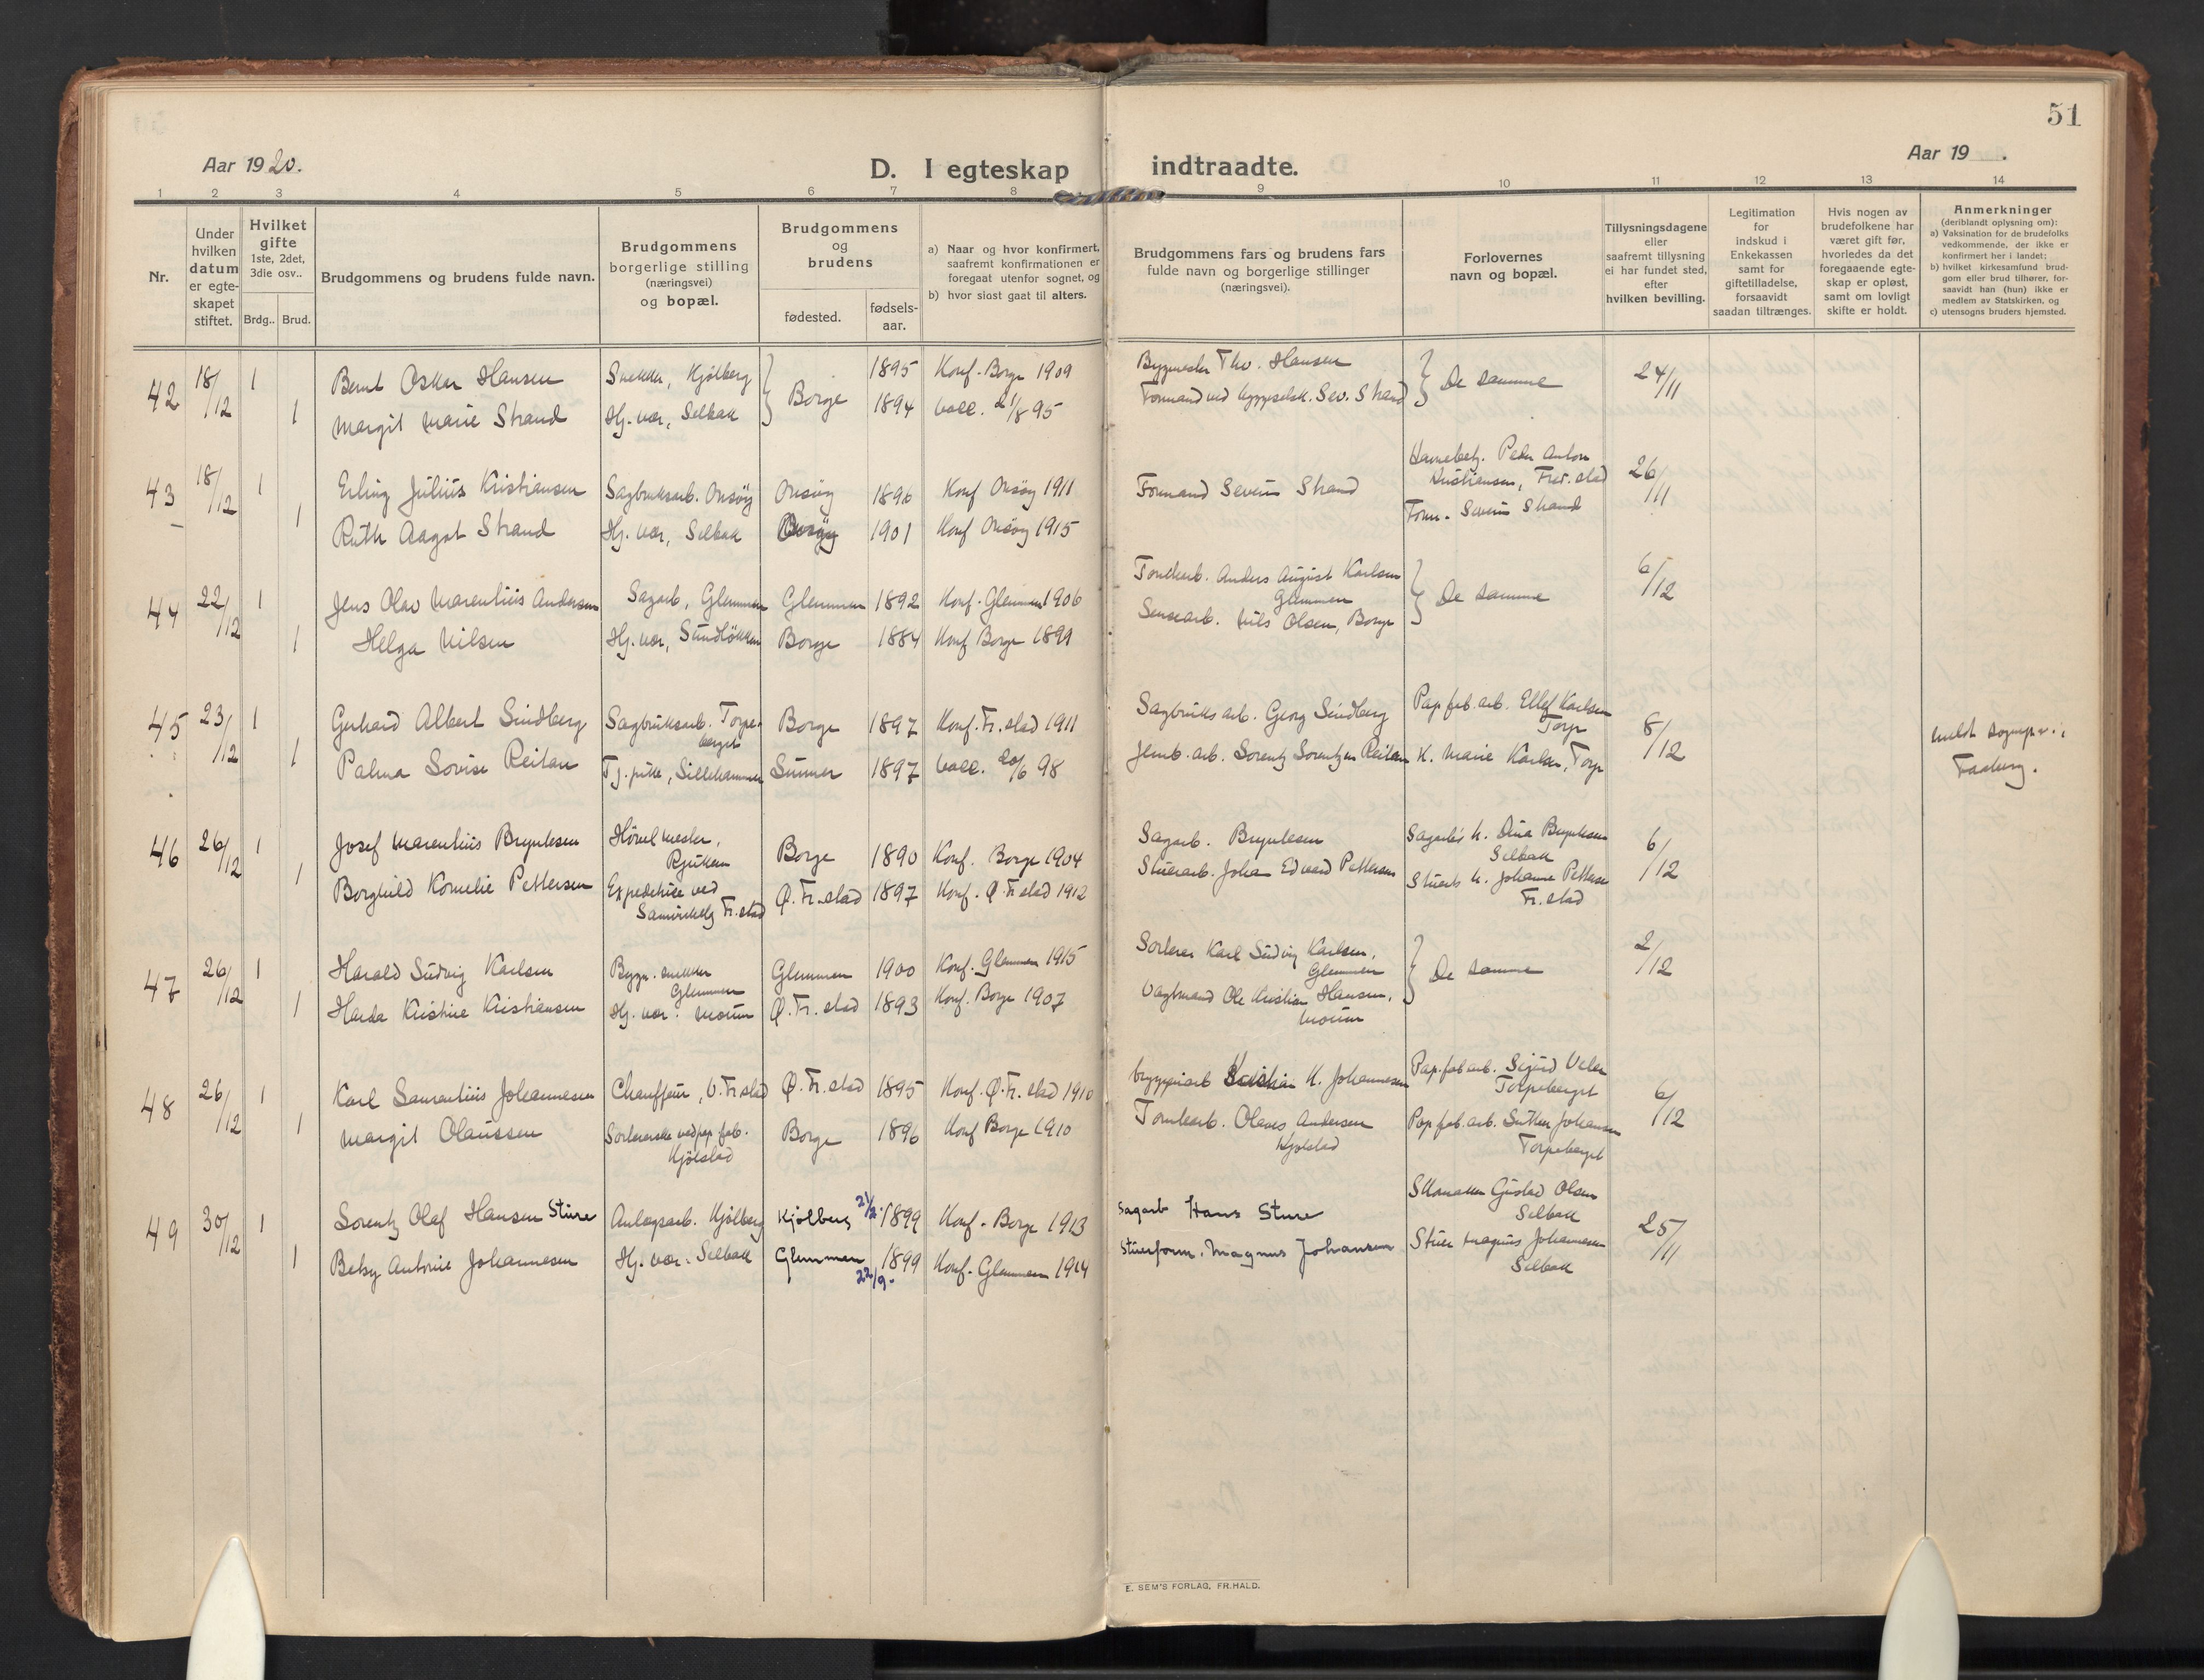 51
Aar 1920.
D. I egteskap indtraadte.
Aar 19 .
1 2 3 4 5 6 7 8 9 10 11 12 13 14
Nr.
Under hvilken datum er egte-skapet stiftet.
Hvilket gifte 1ste, 2det, 3die osv..
Brdg.. Brud.
Brudgommens og brudens fulde navn.
Brudgommens borgerlige stilling (næringsvei) og bopæl.
Brudgommens og brudens
fødested.
fødsels-aar.
a) Naar og hvor konfirmert, saafremt konfirmationen er foregaat utenfor sognet, og
b) hvor sidst gaat til alters.
Brudgommens fars og brudens fars fulde navn og borgerlige stillinger (næringsvei).
Forlovernes navn og bopæl.
Tillysningsdagene eller saafremt tillysning ei har fundet sted, efter hvilken bevilling.
Legitimation for indskud i Enkekassen samt for giftetilladelse, forsaavidt saadan tiltrænges.
Hvis nogen av brudefolkene har været gift før, hvorledes da det foregaaende egte-skap er opløst, samt om lovligt skifte er holdt.
Anmerkninger
(deriblandt oplysning om):
a) Vaksination for de brudefolks vedkommende, der ikke er konfirmert her i landet;
b) hvilket kirkesamfund brud-gom eller brud tilhører, for-saavidt han (hun) ikke er medlem av Statskirken, og
c) utensogns bruders hjemsted.
42 18/12 1 Bernt Oskar Hansen Snekker, Kjölberg } Borge 1895 Konf. Borge 1909 Bygmester Tho. Hansen } De samme 24/11
1 Margit Marie Strand Hj. vær, Selbak 1894 vacc. 21/8 95 Formand ved byggselsk. Sev. Strand
43 18/12 1 Erling Julius Kristiansen Sagbruksarb. Onsøy Onsøy 1896 Konf Onsøy 1911 Formand Severin Strand Havnebetj. Peder Anton
Kristiansen, Fred.stad 26/11
1 Ruth Aagot Strand Hj. vær, Selbak 1901 Konf Onsøy 1915 Form. Severin Strand
44 22/12 1 Jens Olav Marentius Andersen Sagarb, Glemmen Glemmen 1892 Konf. Glemmen 1906 Tomtearb. Anders August Karlsen
Glemmen } De samme 6/12
1 Helga Nilsen Hj. vær, Sundløkken Borge 1884 Konf Borge 1899 Nils Olsen, Borge
45 23/12 1 Gerhard Albert Lindberg Sagbruksarb. Torpe-
berget Borge 1897 Konf. Fr. stad 1911 Sagbruksarb. Georg Lindberg Pap.fab.arb. Ellef Karlsen
Torp 8/12
1 Palma Lovise Reitan Tj. pike, Lillehammer 1897 vacc. 20/6 98 Jernb. arb. Lorentz Lorentzen Reitan K. Marie Karlsen, Torp meldt sognepr. i
Faaberg.
46 26/12 1 Josef Marentius Bryntesen Hövelmester,
Rjukan Borge 1890 Konf. Borge 1904 Sagarb. Bryntesen Sagarb's K. Dina Bryntesen
Selbak 6/12
1 Borghild Kornelie Pettersen Expeditrice ved
Fr. stad Ø. Fr.stad 1897 Konf. Ø Fr stad 1912 Stuerarb. Johan Edvard Pettersen Stuerb K. Johanne Pettersen
Fr. stad
47 26/12 1 Harald Ludvig Karlsen Bygn. snekker
Glemmen Glemmen 1900 Konf. Glemmen 1915 Sorterer Karl Ludvig Karlsen,
Glemmen } De samme 2/12
1 Harda Kristine Kristiansen Hj. vær. Moum Ø. Fr. stad 1893 Konf. Borge 1907 Vagtmand Ole Kristian Hansen,
Moum
48 26/12 1 Karl Laurentius Johannesen Chauffeur, V. Fr.stad Ø. Fr. stad 1895 Konf. Ø. Fr. stad 1910 Bryggeriarb Kristian K. Johannesen Pap.fab.arb. Sigurd
Torpeberget 6/12
1 Margit Olaussen Sortererske ved pap. fab.
Kjölstad Borge 1896 Konf Borge 1910 Tomtearb. Olaves Andersen
Kjølstad Pap.fab.arb. Luther Johansen
Torpeberget
49 30/12 1 Lorentz Olaf Hansen Sture Anlægsarb. Kjölberg Kjölberg 21/2. 1899 Konf. Borge 1913 Sagarb Hans Sture Skomaker Gustav Olsen
Selbak 25/11
1 Betsy Antonie Johannesen Hj. vær. Selbak Glemmen 22/9. 1899 Konf. Glemmen 1914 Stuerform. Magnus Johansen Stuer Magnus Johannesen
Selbak
E. SEM'S FORLAG, FR.HALD.